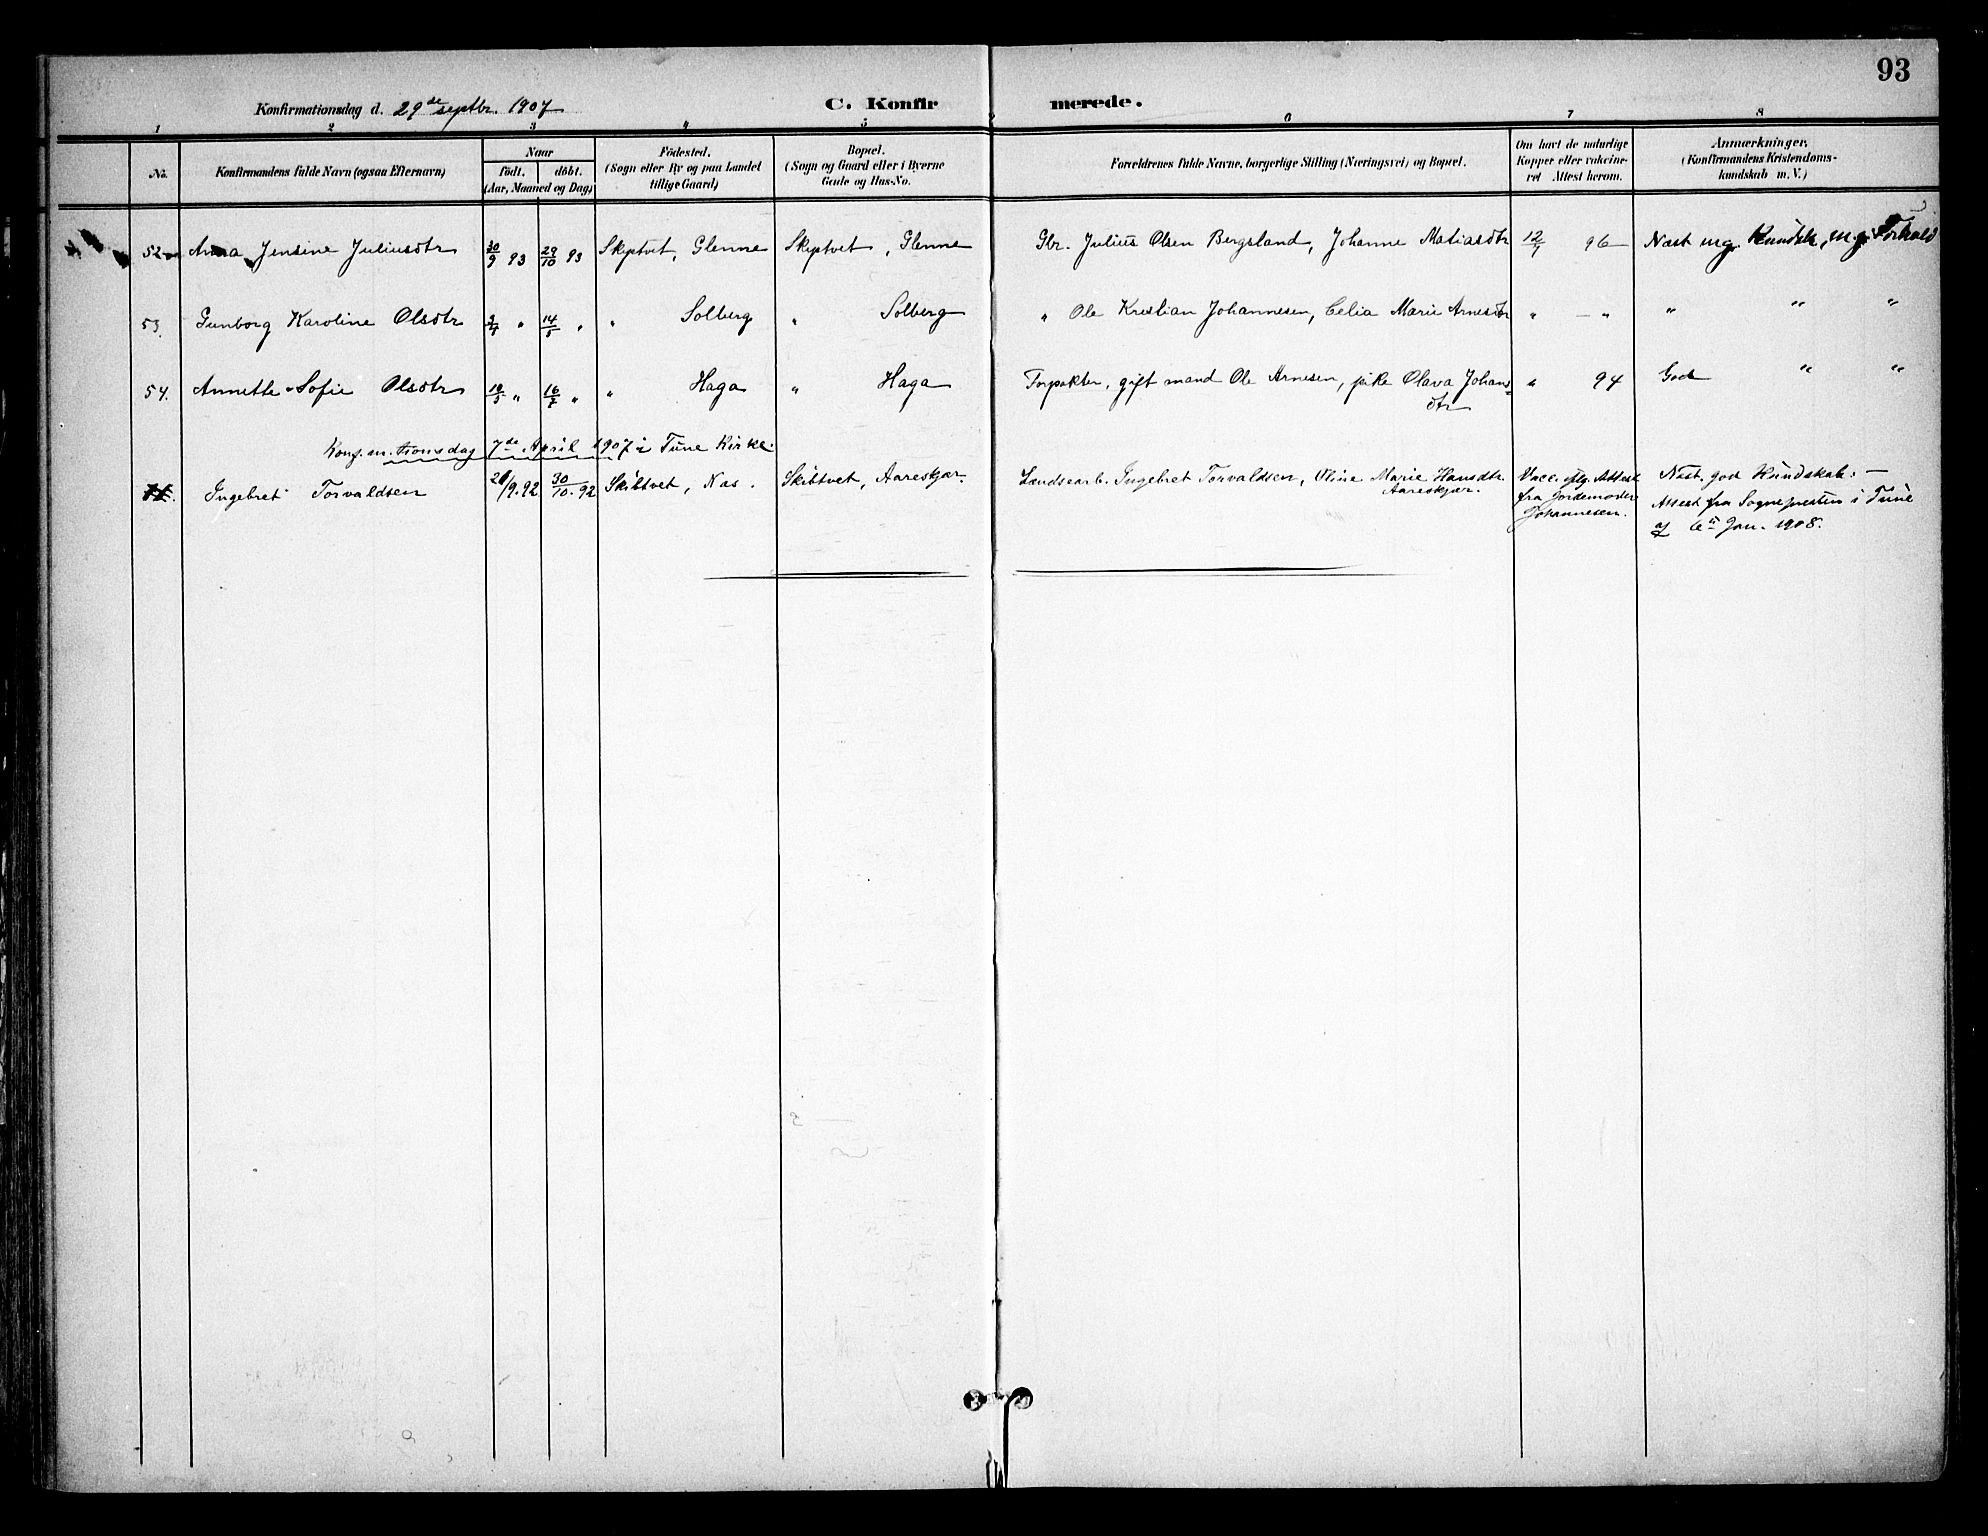 93
Konfirmationsdag d. 29de septbr. 1907
C. Konfirmerede.
1 2 3 4 5 6 7 8
No. Konfirmandens fulde Navn (ogsaa Efternavn) Naar födt. döbt. (Aar, Maaned og Dag) Födested. (Sogn eller By og paa Landet tillige Gaard) Bopæl. (Sogn og Gaard eller i Byerne Gade og Hus-No. Forældrenes fulde Navne, borgerlige Stilling (Næringsvei) og Bopæl. Om havt de naturlige Kopper eller vakcineret Attest herom. Anmærkninger. (Konfirmandens Kristendomskundskab m. V.)
52 Anna Jensine Juliusdtr 30/9 93 29/10 93 Skiptvet, Glenne Skiptvet, Glenne Gbr. Julius Olsen Bergsland, Johanne Matiasdtr 12/7 96 Næst mg. Kundsk, m.g. Forhold
53. Gunborg Karoline Olsdtr " 14/5 " " Solberg " Solberg " Ole Kristian Johannesen, Celia Marie Arnesdtr " — " " " "
54. Annette Sofie Olsdtr " 16/7 " " Haga " Haga Forpakter, gift mand Ole Arnesen, pike Olava Johansdtr " 94 God " "
Konf.m.tionsdag 7de April 1907 i Tune Kirke.
Ingebret Torvaldsen /9.92 30/10.92 Skibtvet, Næs. Skibtvet, Aareskjær. Landsearb. Ingebret Torvaldsen, Oline Marie Hansdtr. Aareskjær. Vacc. iflg. Attest fra Jordemoder Johannesen. Næst. god Kundskab: —
Attest fra Sognepresten i Tune
af 6te Jan. 1908.